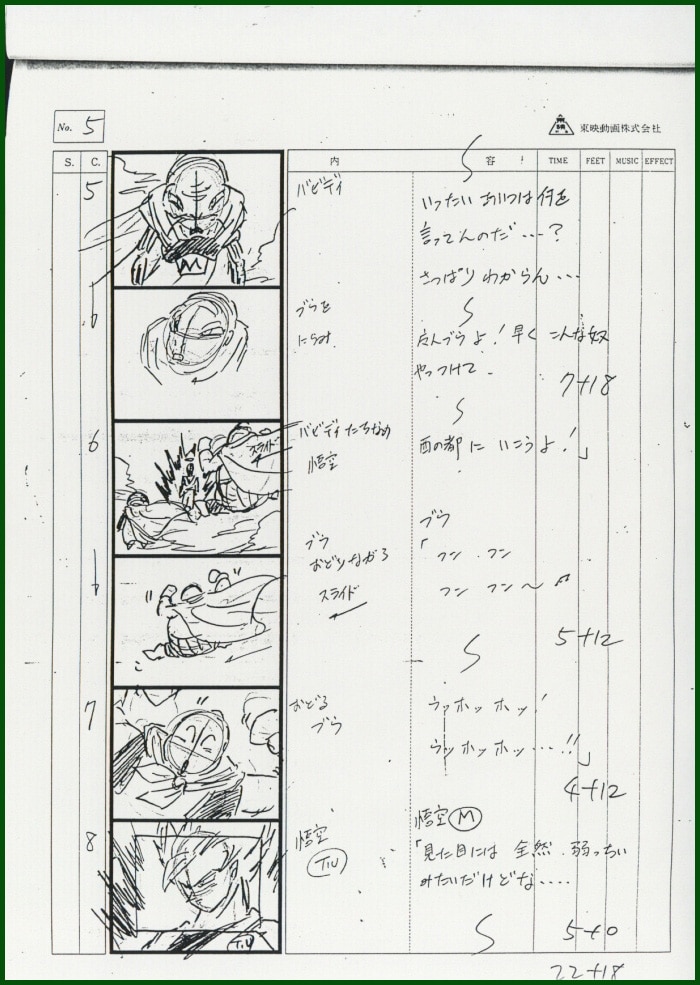 No. 5
東映動画株式会社
S. C. 内 容 TIME FEET MUSIC EFFECT
5
バビディ
いったい あいつは 何を
言ってんのだ・・・?
さっぱり わからん・・・
M
ブウを
にらみ
ブウよ! 早く こんな奴
やっつけて
7+18
西の都に いこうよ!」
6
バビディたちなめ
悟空
スライド
ブウ
「フン フン
フン フン〜♬
ブウ
おどりながら
スライド
5+12
7
おどる
ブウ
ウッホッホッ!
ウッホッホッ・・・!!」
4+12
8
悟空
T.U
悟空 M
「見た目には 全然 弱っちい
みたいだけどな・・・・
T.U
5+0
22+18